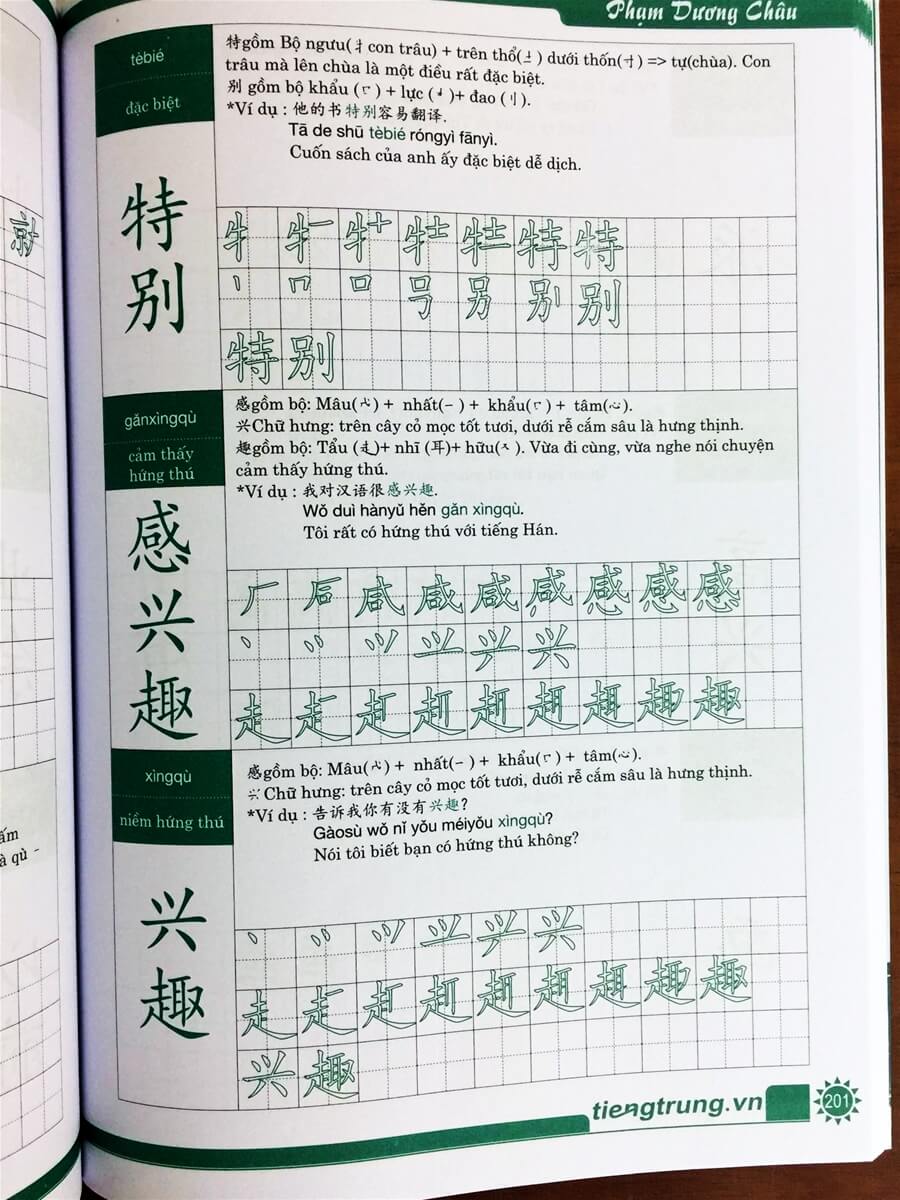 Phạm Dương Châu
tèbié
đặc biệt
特别
特gồm Bộ ngưu(牜con trâu) + trên thổ(土) dưới thốn(寸) => tự(chùa). Con
trâu mà lên chùa là một điều rất đặc biệt.
别 gồm bộ khẩu (口) + lực (力)+ đao (刂).
*Ví dụ : 他的书特别容易翻译.
Tā de shū tèbié róngyì fānyì.
Cuốn sách của anh ấy đặc biệt dễ dịch.
特
别
特别
gănxìngqù
cảm thấy
hứng thú
感兴趣
感gồm bộ: Mâu( ) + nhất(一) + khẩu(口) + tâm(心).
兴Chữ hưng: trên cây cỏ mọc tốt tươi, dưới rễ cắm sâu là hưng thịnh.
趣gồm bộ: Tẩu (走)+ nhĩ (耳)+ hữu(又). Vừa đi cùng, vừa nghe nói chuyện
cảm thấy hứng thú.
*Ví dụ : 我对汉语很感兴趣.
Wǒ duì hànyǔ hěn găn xìngqù.
Tôi rất có hứng thú với tiếng Hán.
感
兴
趣
xìngqù
niềm hứng thú
兴趣
感gồm bộ: Mâu( ) + nhất(一) + khẩu(口) + tâm(心).
Chữ hưng: trên cây cỏ mọc tốt tươi, dưới rễ cắm sâu là hưng thịnh.
*Ví dụ : 告诉我你有没有兴趣?
Gàosù wǒ nǐ yǒu méiyǒu xìngqù?
Nói tôi biết bạn có hứng thú không?
兴
趣
兴趣
tiengtrung.vn
201